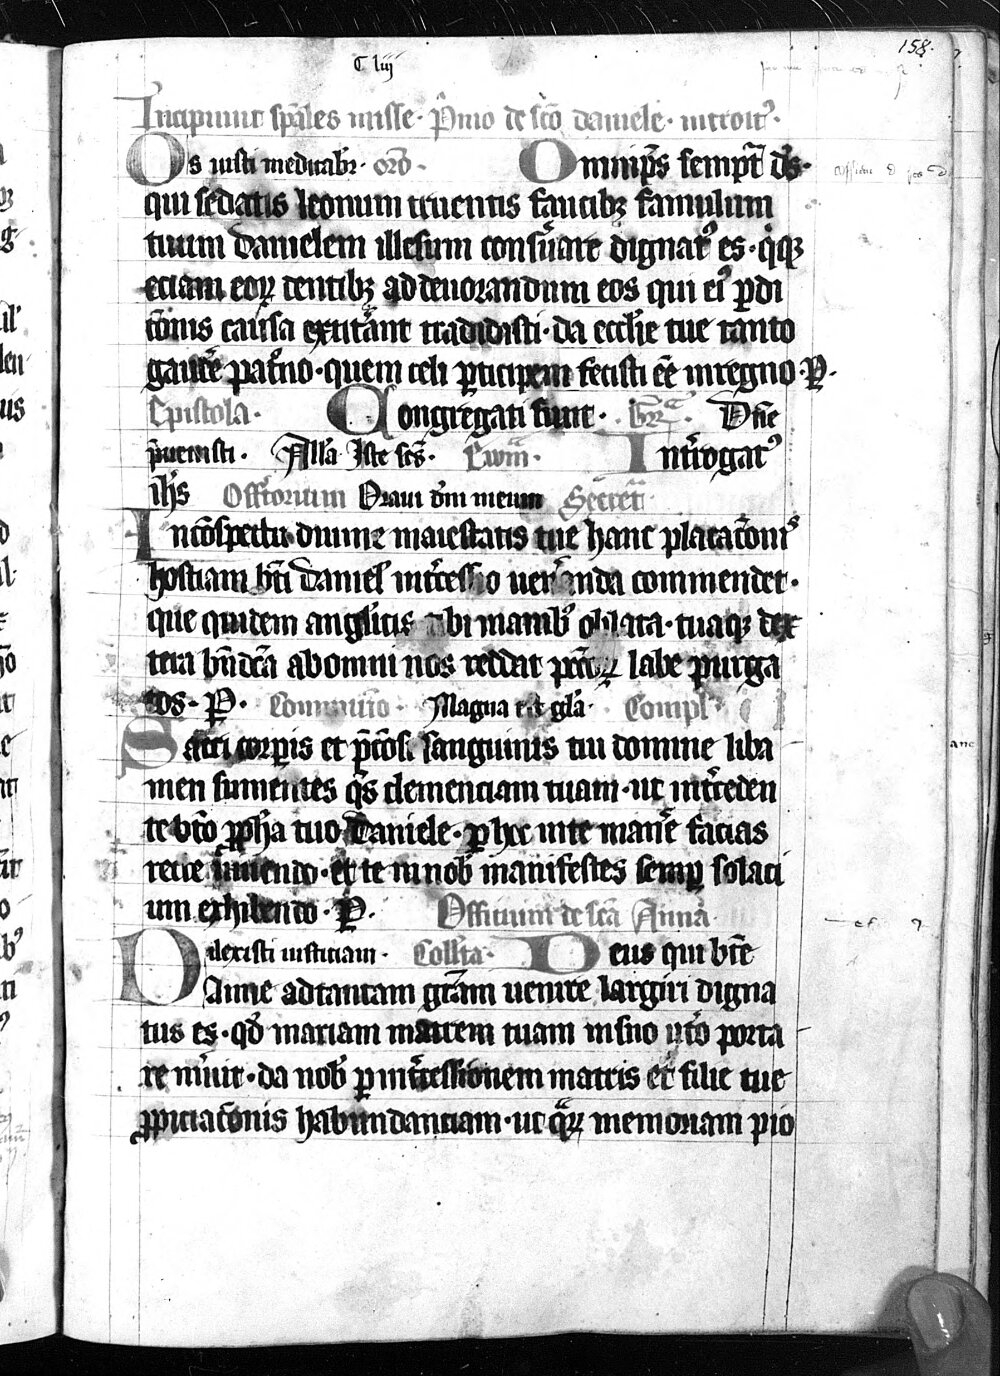 C liij
158.
Incipiunt sp̄ales misse · P̄mo de sc̄o daniele · introitꝰ ·
Os iusti meditabr̄ · orō · Omnip̄s sempt̄ ds̄ ·
qui sedatis leonum cruentis faucibꝫ famulum
tuum danielem illesum consuare dignatꝰ es · qͥqꝫ
eciam eoꝝ dentibꝫ ad deuorandum eos qui eiꝰ ꝑdi
c̄onis causa extit̄ant tradidisti · da eccl̄ie tue tanto
gaud̄e pat̄no · quem celi ꝑticipem fecisti ēē in regno P̄ ·
Epistola · Congregati sunt · Gr̄ · Dn̄e
p̄uenisti · All̄a Iste sc̄s · Ewm̄ · Int̄rogatꝰ
ih̄s Offtorium Oraui dm̄ meum Secret̄
In c̄ospectu diuine maiestatis tue hanc placac̄onis
hostiam bt̄i daniel int̄cessio ueneranda commendet ·
que quidem anglicis tibi manibꝰ oblata · tuaqꝫ dex
tera bn̄dc̄a ab omni nos reddat pcc̄oꝝ labe purga
tos · P̄ · Communio · Magna est gl̄a · Compl̄
Sacri corp̄is et p̄cōsi sanguinis tui domine liba
men sumentes qs̄ clemenciam tuam · ut int̄ceden
te bt̄o ꝓph̄a tuo Daniele · ꝑ hec in te man̄e facias
recte uiuendo · et te in nob̄ manifestes semꝑ solaci
um exhibendo · P̄ · Officium de sc̄a Anna ·
Dilexisti iusticiam · Coll̄ta · Deus qui bt̄e
Anne ad tantam gr̄am uenire largiri digna
tus es · qd̄ mariam matrem tuam in suo ut̄o porta
re m̄uit · da nob̄ ꝑ int̄cessionem matris et filie tue
ꝓpiciac̄onis habundanciam · ut qͣꝝ memoriam pio